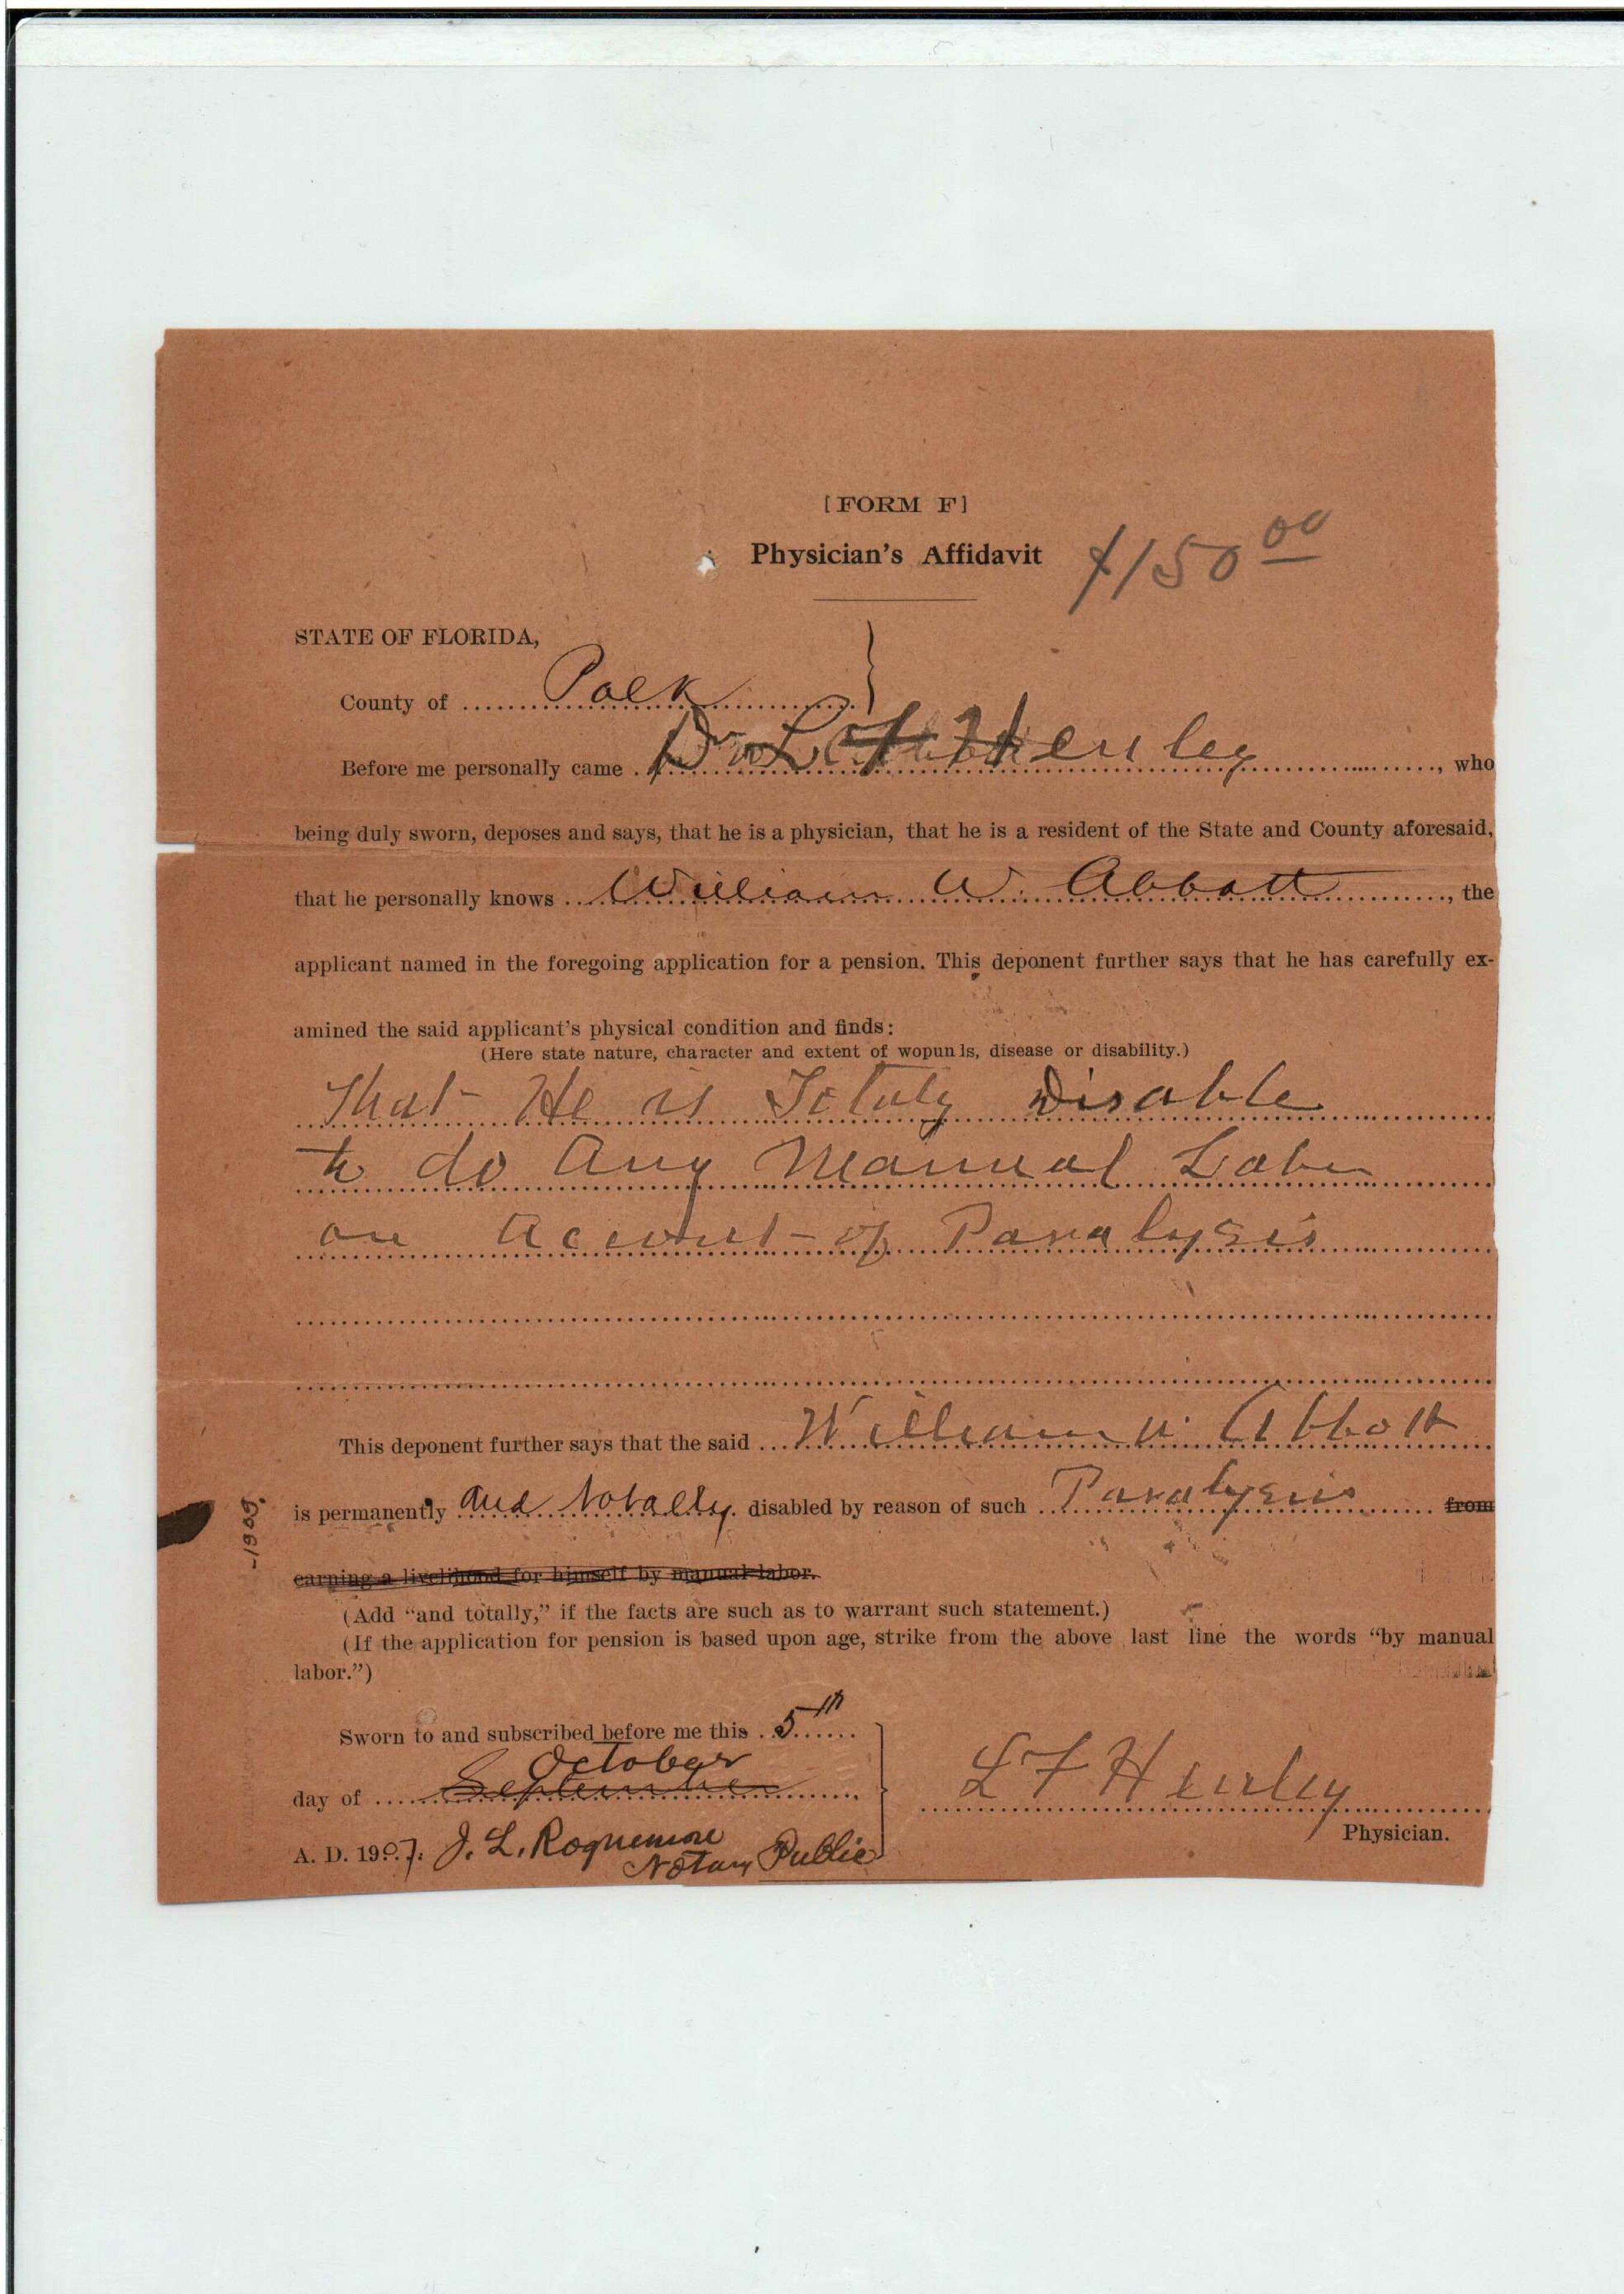 [FORM F]
Physician's Affidavit $150 00
STATE OF FLORIDA,
County of Polk
Before me personally came Dr L F Henley, who
being duly sworn, deposes and says, that he is a physician, that he is a resident of the State and County aforesaid,
that he personally knows William W. Abbott, the
applicant named in the foregoing application for a pension. This deponent further says that he has carefully ex-
amined the said applicant's physical condition and finds:
(Here state nature, character and extent of wopunls, disease or disability.)
That He is Totaly Disable
to do Any Manual Labor
on Account of Paralysis
This deponent further says that the said William W. Abbott
is permanently and totally disabled by reason of such Paralysis from
earning a livelihood for himself by manual labor.
(Add "and totally," if the facts are such as to warrant such statement.)
(If the application for pension is based upon age, strike from the above last line the words "by manual
labor.")
Sworn to and subscribed before me this 5th
October
day of September
L F Henley
Physician.
A. D. 1907. J. L. Roquemore
Notary Public
-1909.